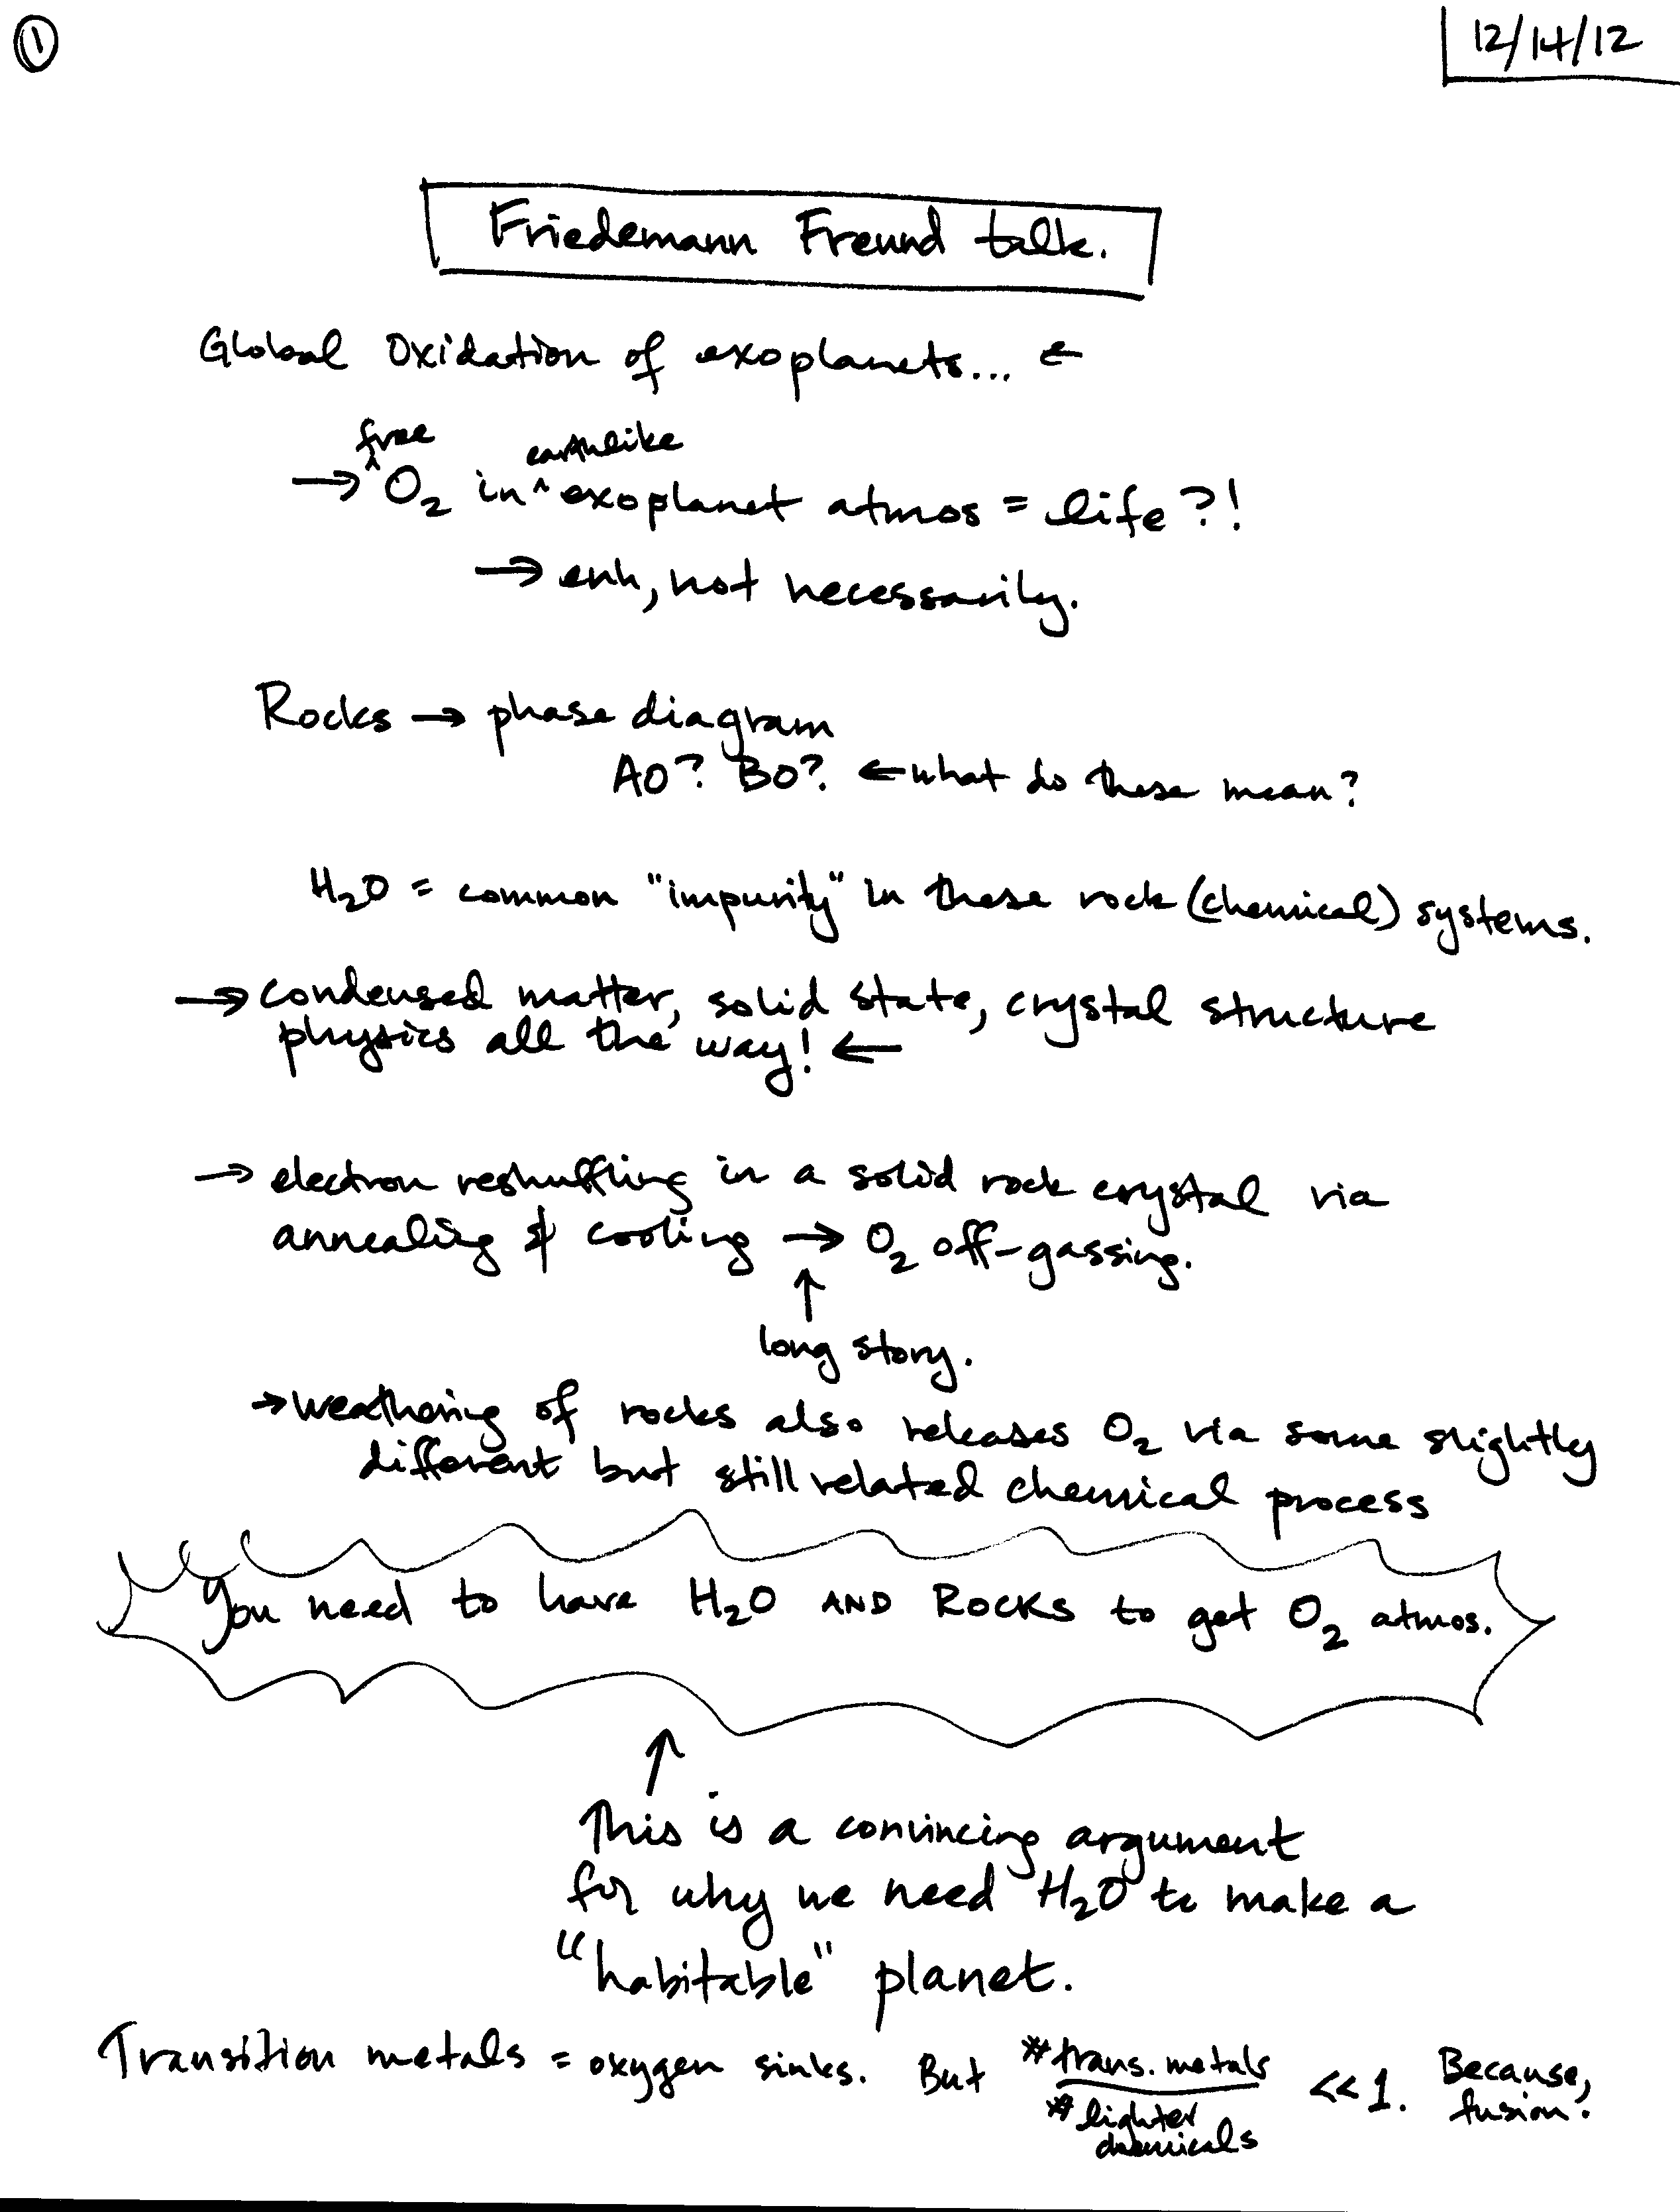 ①
12/14/12
Friedemann Freund talk.
Global Oxidation of exoplanets... ←
free earthlike
→ ^O₂ in ^ exoplanet atmos = life?!
→ enh, not necessarily.
Rocks → phase diagram
AO? BO? ← what do these mean?
H₂O = common "impurity" in these rock (chemical) systems.
→ condensed matter, solid state, crystal structure
physics all the way! ←
→ electron reshuffling in a solid rock crystal via
annealing & cooling → O₂ off-gassing.
↑
long story.
→ weathering of rocks also releases O₂ via some slightly
different but still related chemical process
You need to have H₂O AND ROCKS to get O₂ atmos.
↑
This is a convincing argument
for why we need H₂O to make a
"habitable" planet.
Transition metals = oxygen sinks. But # trans. metals / # lighter chemicals << 1. Because, fusion.